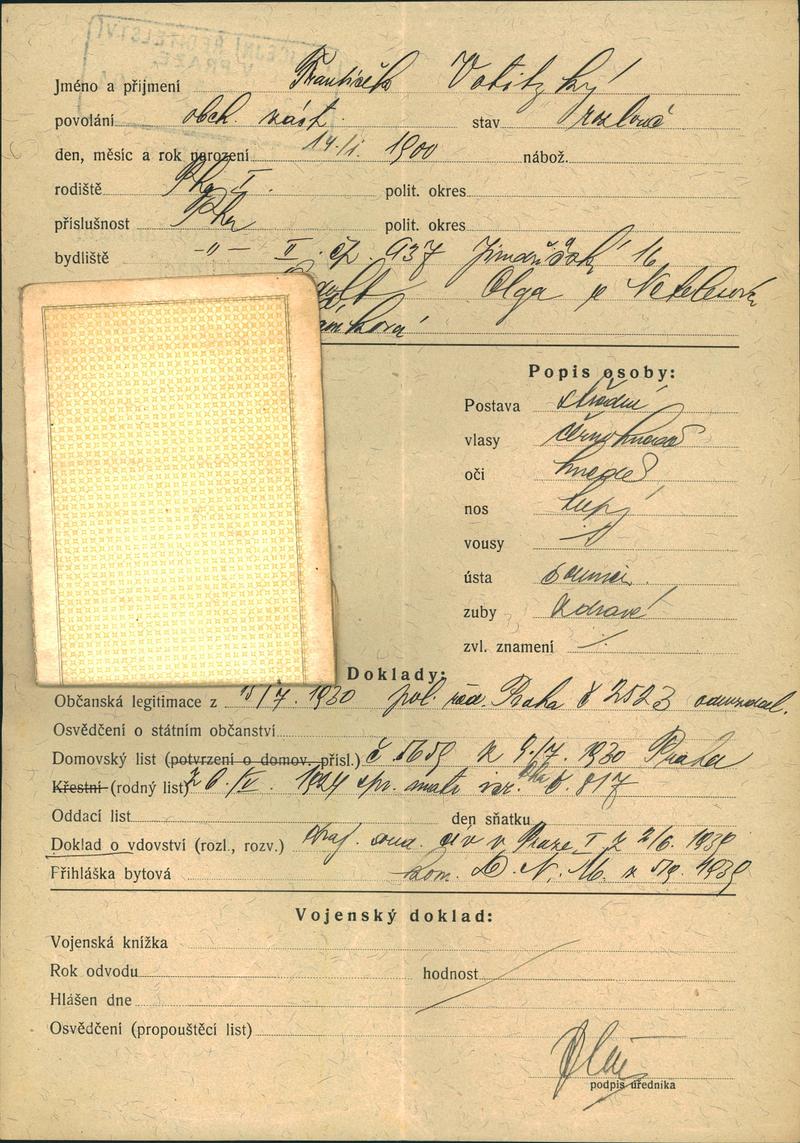 Jméno a příjmení František Votitzký
povolání obch. zást. stav rozloučé
den, měsíc a rok narození 14./I. 1900 nábož.
rodiště Pha I. polit. okres
příslušnost Pha polit. okres
bydliště -"- II. čp. 937 16
Olga
Popis osoby:
Postava střední
vlasy černohnědé
oči hnědé
nos tupý
vousy
ústa souměr.
zuby zdravé
zvl. znamení
Doklady:
Občanská legitimace z 15/7. 1930 pol. řed. Praha č 2523 odevzdal.
Osvědčení o státním občanství
Domovský list (potvrzení o domov. přísl.) č. 5659 z 9./7. 1930 Praha
Křestní (rodný list) 26./IV. 1924 č. 817
Oddací list den sňatku
Doklad o vdovství (rozl., rozv.) Kraj. soud civ v Praze I z 2/6. 1939
Přihláška bytová kom. D. N. M. z 5/9. 1939
Vojenský doklad:
Vojenská knížka
Rok odvodu hodnost
Hlášen dne
Osvědčení (propouštěcí list)
podpis úředníka